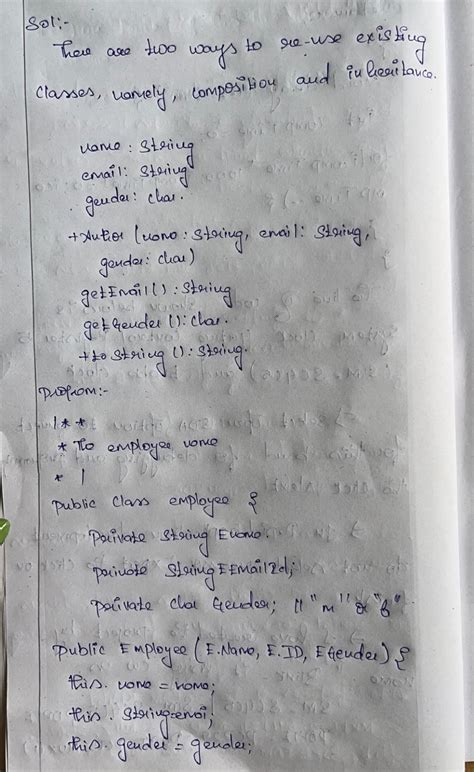 Sol:-
There are two ways to re-use existing
classes, namely, composition and inheritance.
name : String
email: String
gender: char.
+Author (name : String, email: String,
gender: char)
getEmail() : String
getGender (): char.
+to String (): String.
Program:-
/**
* The employee name
* /
public class employee {
private String Ename.
private String EEmailId;
private char Gender; // "m" or "f"
public Employee (E.Name, E.ID, EGender) {
this. name = name;
this. String=emai;
this. gender = gender;